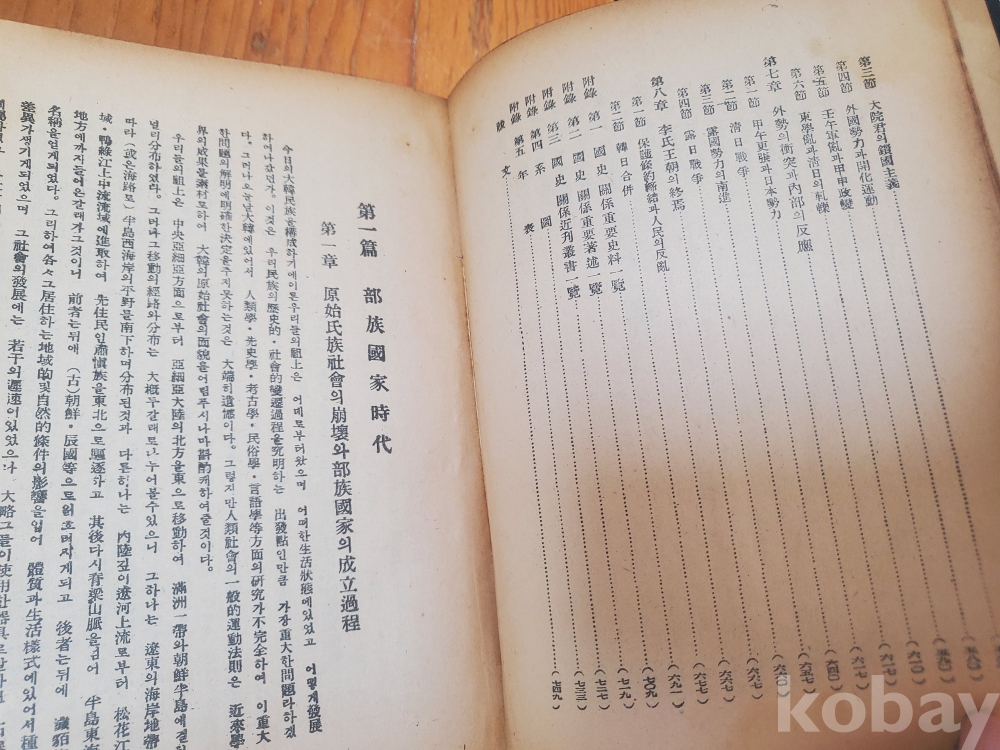 第三節 大院君의鎖國主義
第四節 外國勢力과開化運動
第五節 壬午軍亂과甲申政變
第六節 東學亂과淸日의軋轢
第七章 外勢의衝突과內部의反應
第一節 甲午更張과日本勢力
第二節 淸日戰爭
第三節 露國勢力의南進
第四節 露日戰爭
第八章 李氏王朝의終焉
第一節 保護條約締結과人民의反亂
第二節 韓日合併
附錄 第一 國史 關係重要史料一覽
附錄 第二 國史 關係重要著述一覽
附錄 第三 國史 關係近刊叢書一覽
附錄 第四 系圖
附錄 第五 年表
跋文
第一篇 部族國家時代
第一章 原始氏族社會의崩壞와部族國家의成立過程
今日의大韓民族을構成하기에이른우리들의祖上은 어데로부터왔으며 어떠한生活狀態에있었고 어떻게發展
하여나갔던가. 이것은 우리民族의歷史的·社會的變遷過程을究明하는 出發點인만큼 가장重大한問題라하겠
다. 그러나오늘날大韓에있어서 人類學·先史學·考古學·民俗學·言語學等方面의硏究가不完全하여 이重大
한問題의解明에明確한決定을주지못하는것은 大端히遺憾이다. 그렇지만人類社會의一般的運動法則은 近來學
界의成果를 로하여 大韓의原始社會의面貌를어렴푸시나마斟酌케하여줄것이다.
우리들의祖上은 中央亞細亞方面으로부터 亞細亞大陸의北方을東으로移動하여 滿洲一帶와朝鮮半島에걸친
널리分布하였다. 그러나그移動의經路와分布는 大槪두갈래로나누어볼수있으니 그하나는 遼東의海岸地帶
따라 (或은海路로) 半島西海岸의平野를南下하며分布된것과 다른하나는 內陸깊이遼河上流로부터 松花江
域·鴨綠江上中流流域에進取하여 先住民인肅愼族을東北으로驅逐하고 其後다시脊梁山脈을넘어 半島東海
地方에까지들어온갈래가그것이니 前者는뒤에 (古)朝鮮·辰國等으로불려지게되고 後者는뒤에 濊貊
名稱을얻게되었다. 그리하여各々그居住하는地域的및自然的條件의影響을입어 體質과生活樣式에있어서種
差異가생기게되었으며 그社會의發展에는 若干의遲速이있었으나 大略그들이使用한器具로말
kobay